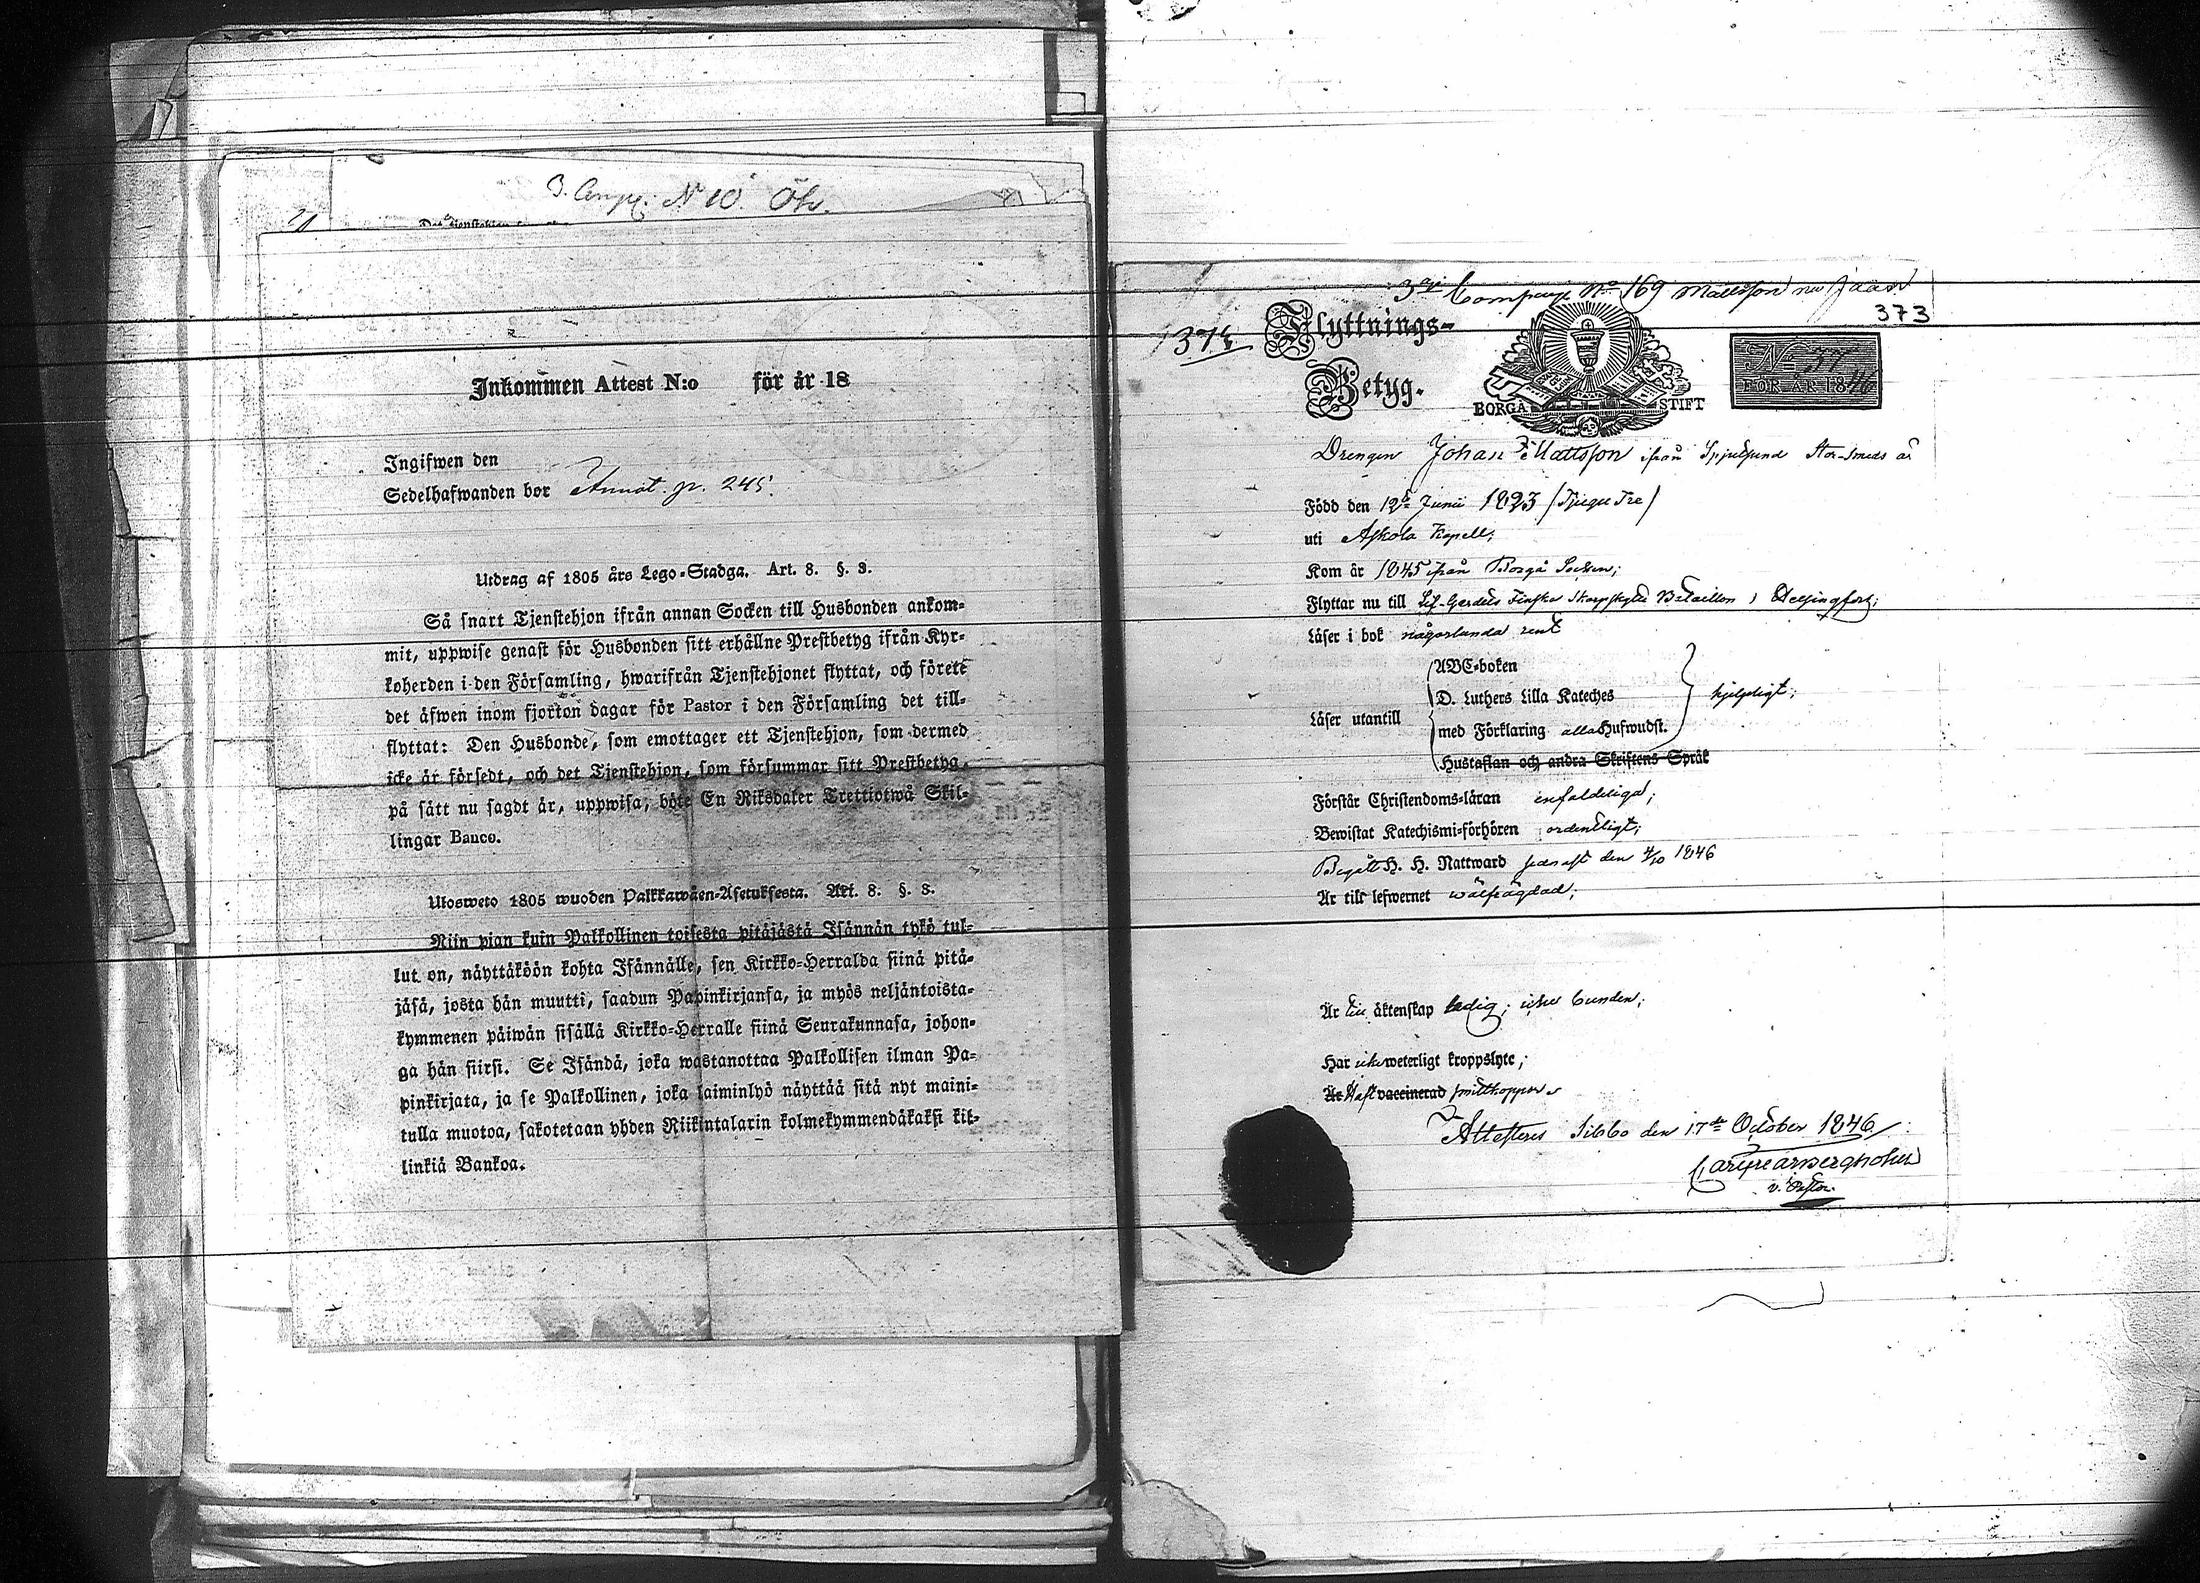 3. Comp. N 10. Öh.
Inkommen Attest N:o för år 18
Ingifwen den
Sedelhafwanden bor Annot. p. 245.
Utdrag af 1805 års Lego-Stadga. Art. 8. §. 8.
Så snart Tjenstehjon ifrån annan Socken till Husbonden ankom-
mit, uppwise genast för Husbonden sitt erhållne Prestbetyg ifrån Kyr-
koherden i den Församling, hwarifrån Tjenstehjonet flyttat, och förete
det äfwen inom fjorton dagar för Pastor i den Församling det till-
flyttat: Den Husbonde, som emottager ett Tjenstehjon, som dermed
icke är försedt, och det Tjenstehjon, som försummar sitt Prestbetyg,
på sätt nu sagdt är, uppwisa, böte En Riksdaler Trettiotwå Skil-
lingar Banco.
Ulosweto 1805 wuoden Palkkawäen-Asetuksesta. Art. 8. §. 8.
Niin pian kuin Palkollinen toisesta pitäjästä Isännän tykö tul-
lut on, näyttäköön kohta Isännälle, sen Kirkko-Herralda siinä pitä-
jäsä, josta hän muutti, saadun Papinkirjansa, ja myös neljäntoista-
kymmenen päiwän sisällä Kirkko-Herralle siinä Seurakunnasa, johon-
ga hän siirsi. Se Isändä, joka wastanottaa Palkollisen ilman Pa-
pinkirjata, ja se Palkollinen, joka laiminlyö näyttää sitä nyt maini-
tulla muotoa, sakotetaan yhden Riikintalarin kolmekymmendäkaksi kil-
linkiä Bankoa.
3dje Compagni No 169 Mattsson nu Jään
373
1374
Flyttnings-
Betyg.
BORGÅ STIFT
No 37
FÖR ÅR 1846
Drengen Johan Mattsson ifrån Spjutsund Stor-Smeds är
Född den 12te Junii 1823 /Tjugu Tre/
uti Askola Kapell;
Kom år 1845 ifrån Borgå Socken;
Flyttar nu till Lif-Gardets Finska Skarpskytte Bataillon i Helsingfors;
Läser i bok någorlunda rent
Läser utantill
ABC-boken
D. Luthers Lilla Kateches
med Förklaring alla Hufwudst.
Hustaflan och andra Skriftens Språk
hjelpligt;
Förstår Christendoms-läran enfaldeliga;
Bewistat Katechismi-förhören ordentligt;
Begått H. H. Nattward sednast den 4/10 1846
Är till lefwernet wälfrägdad;
Är till äktenskap ledig; icke bunden;
Har icke weterligt kroppslyte;
Är Haft vaccinerad smittkoppor
Attesteras Sibbo den 17de October 1846
v. Pastor.